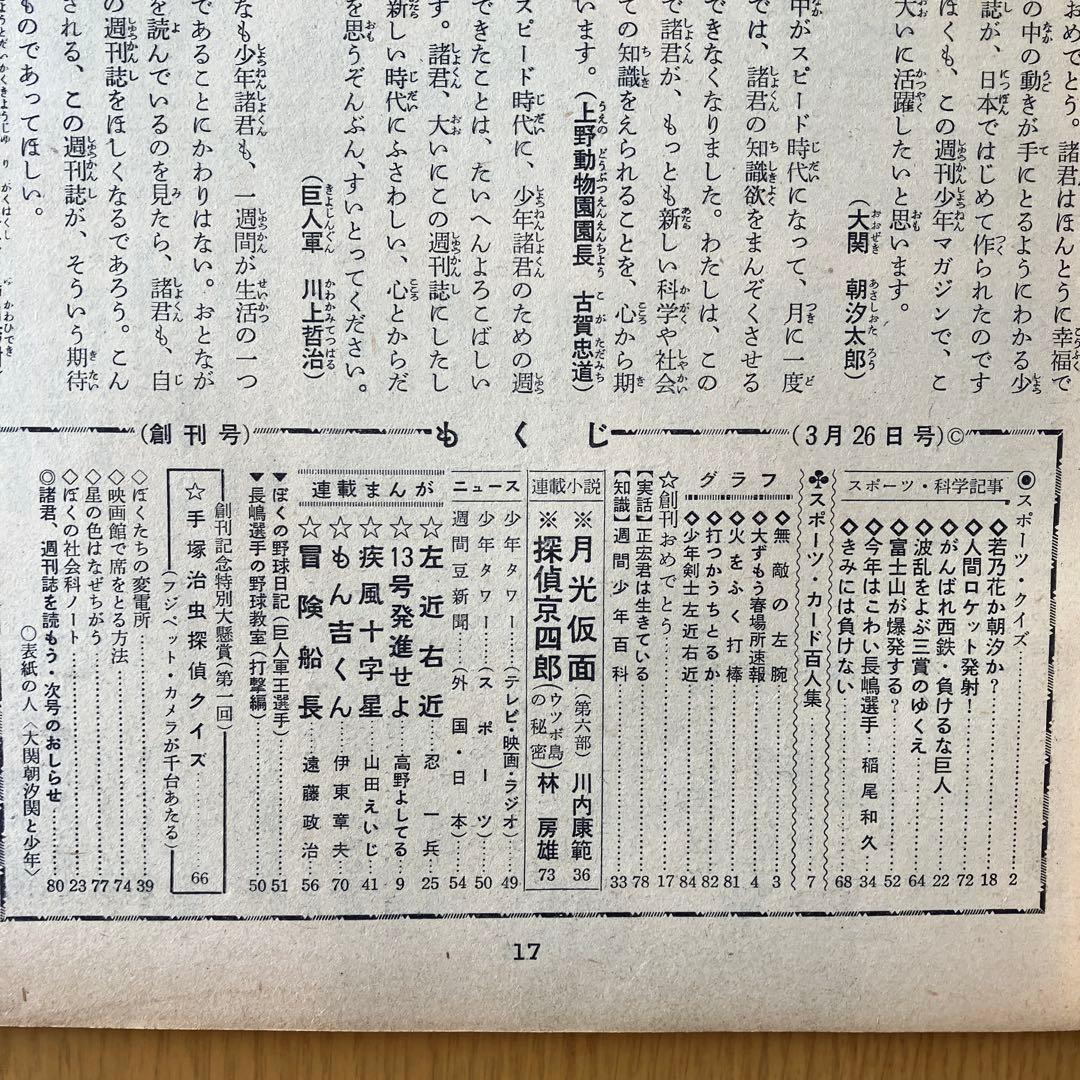 おめでとう。諸君はほんとうに幸福で
の中の動きが手にとるようにわかる少
誌が、日本ではじめて作られたのです
ぼくも、この週刊少年マガジンで、こ
大いに活躍したいと思います。
（大関　朝汐太郎）
中がスピード時代になって、月に一度
では、諸君の知識欲をまんぞくさせる
できなくなりました。わたしは、この
で諸君が、もっとも新しい科学や社会
ての知識をえられることを、心から期
います。（上野動物園園長　古賀忠道）
スピード時代に、少年諸君のための週
できたことは、たいへんよろこばしい
す。諸君、大いにこの週刊誌にしたし
新しい時代にふさわしい、心とからだ
を思うぞんぶん、すいとってください。
（巨人軍　川上哲治）
なも少年諸君も、一週間が生活の一つ
であることにかわりはない。おとなが
を読んでいるのを見たら、諸君も、自
の週刊誌をほしくなるであろう。こん
される、この週刊誌が、そういう期待
ものであってほしい。
もくじ
（3月26日号）©
（創刊号）
◉スポーツ・クイズ 2
スポーツ・科学記事
◆若乃花か朝汐か？ 18
◆人間ロケット発射！ 72
◆がんばれ西鉄・負けるな巨人 22
◆波乱をよぶ三賞のゆくえ 64
◆富士山が爆発する？ 52
◆今年はこわい長嶋選手 稲尾和久 34
◆きみには負けない 68
♣スポーツ・カード百人集 7
グラフ
◆無敵の左腕 3
◆大ずもう春場所速報 4
◆火をふく打棒 81
◆打つかうちとるか 82
◆少年剣士左近右近 84
☆創刊おめでとう 17
【実話】正宏君は生きている 78
【知識】週間少年百科 33
連載小説
※月光仮面（第六部）川内康範 36
※探偵京四郎（ウツボ島の秘密）林　房雄 73
ニュース
少年タワー（テレビ・映画・ラジオ） 49
少年タワー（スポーツ） 50
週間豆新聞（外国・日本） 54
連載まんが
☆左近右近 忍　一兵 25
☆13号発進せよ 高野よしてる 9
☆疾風十字星 山田えいじ 41
☆もん吉くん 伊東章夫 70
☆冒険船長 遠藤政治 56
▼ぼくの野球日記（巨人軍王選手） 51
▼長嶋選手の野球教室（打撃編） 50
創刊記念特別大懸賞（第一回）
☆手塚治虫探偵クイズ 66
（フジペット・カメラが千台あたる）
◇ぼくたちの変電所 39
◇映画館で席をとる方法 74
◇星の色はなぜちがう 77
◇ぼくの社会科ノート 23
◎諸君、週刊誌を読もう・次号のおしらせ 80
○表紙の人〈大関朝汐関と少年〉
17